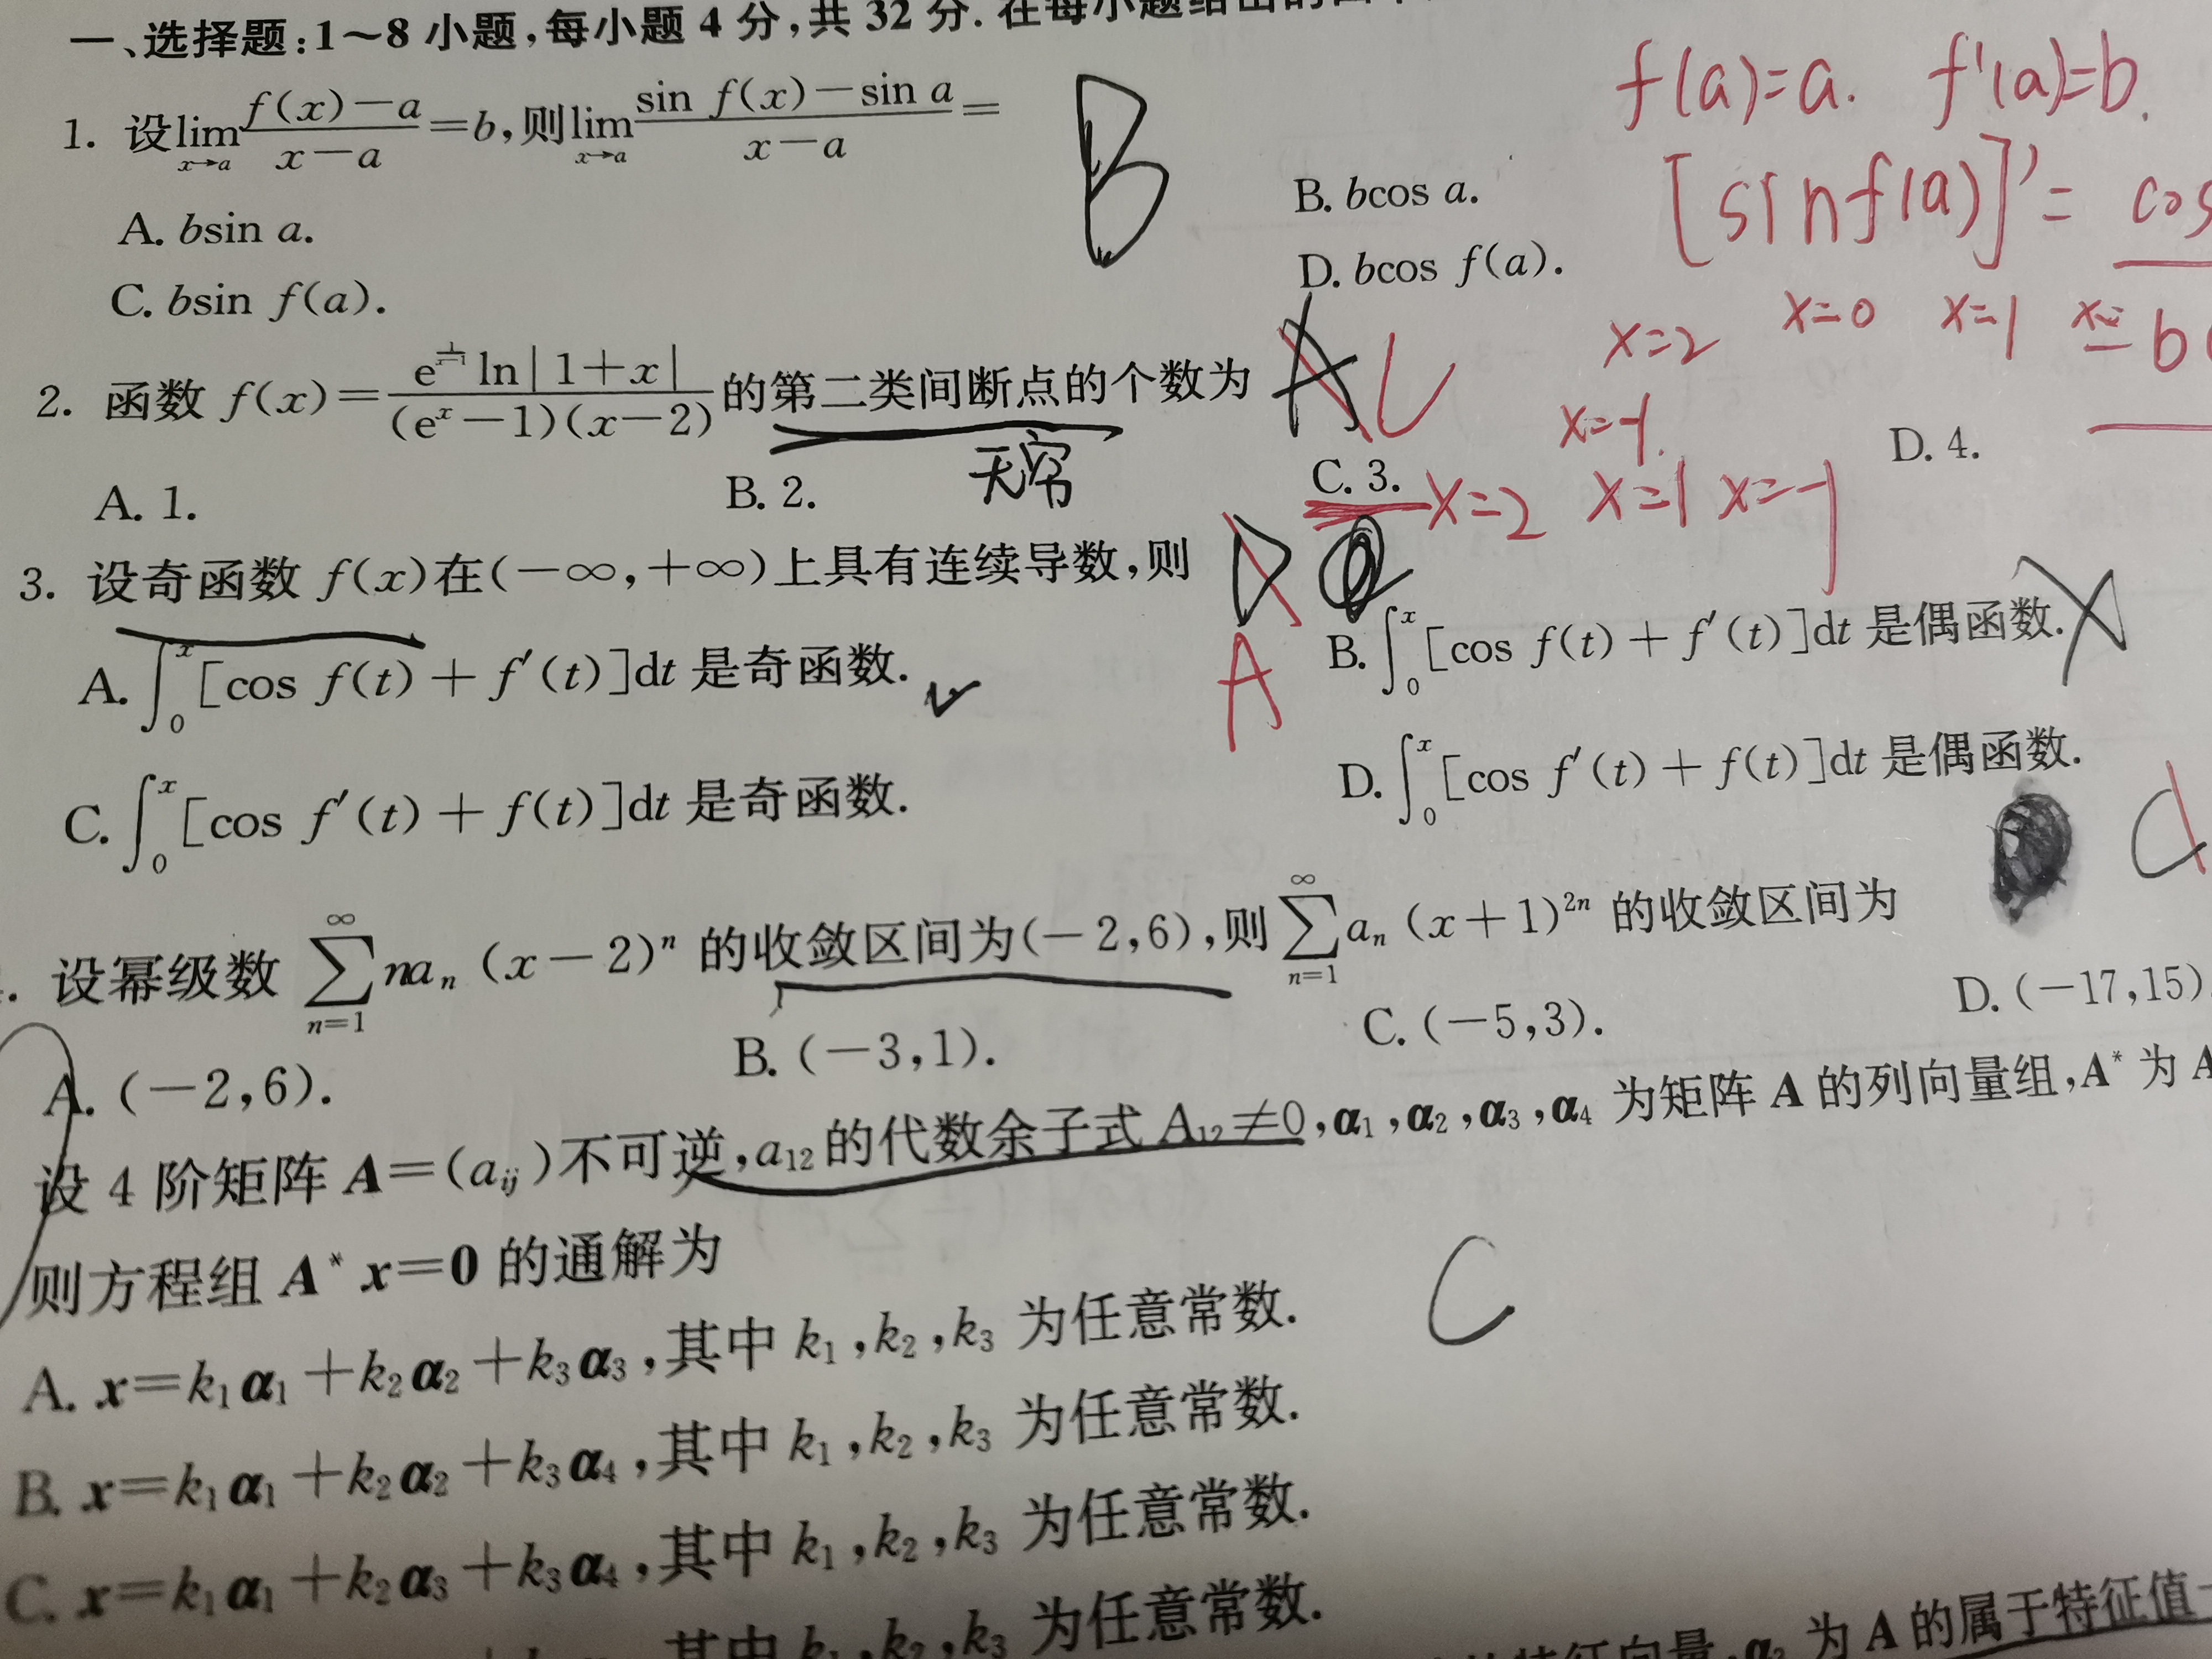 一、选择题:1～8 小题,每小题 4 分,共 32 分.在每小题给出的四
f(a)=a. f'(a)=b.
1. 设lim_{x→a} (f(x)-a)/(x-a)=b,则lim_{x→a} (sin f(x)-sin a)/(x-a)=
B
[sinf(a)]'= cos
A. bsin a.
B. bcos a.
C. bsin f(a).
D. bcos f(a).
x=2 x=0 x=1 x=
= b
2. 函数 f(x)= (e^{1/(x-1)} ln|1+x|)/((e^x-1)(x-2)) 的第二类间断点的个数为
A C
x=-1.
无穷
A. 1.
B. 2.
C. 3.
D. 4.
x=2 x=1 x=-1
3. 设奇函数 f(x)在(-∞,+∞)上具有连续导数,则
D
A
A. ∫_0^x [cos f(t)+f'(t)]dt 是奇函数.
B. ∫_0^x [cos f(t)+f'(t)]dt 是偶函数.
C. ∫_0^x [cos f'(t)+f(t)]dt 是奇函数.
D. ∫_0^x [cos f'(t)+f(t)]dt 是偶函数.
. 设幂级数 ∑_{n=1}^∞ na_n (x-2)^n 的收敛区间为(-2,6),则 ∑_{n=1}^∞ a_n (x+1)^{2n} 的收敛区间为
A. (-2,6).
B. (-3,1).
C. (-5,3).
D. (-17,15)
设 4 阶矩阵 A=(a_{ij})不可逆,a_{12} 的代数余子式 A_{12}≠0,α_1,α_2,α_3,α_4 为矩阵 A 的列向量组,A* 为 A
则方程组 A* x=0 的通解为
C
A. x=k_1α_1+k_2α_2+k_3α_3,其中 k_1,k_2,k_3 为任意常数.
B. x=k_1α_1+k_2α_2+k_3α_4,其中 k_1,k_2,k_3 为任意常数.
C. x=k_1α_1+k_2α_3+k_3α_4,其中 k_1,k_2,k_3 为任意常数.
其中 k_1,k_2,k_3 为任意常数.
特征向量,α_3 为 A 的属于特征值-